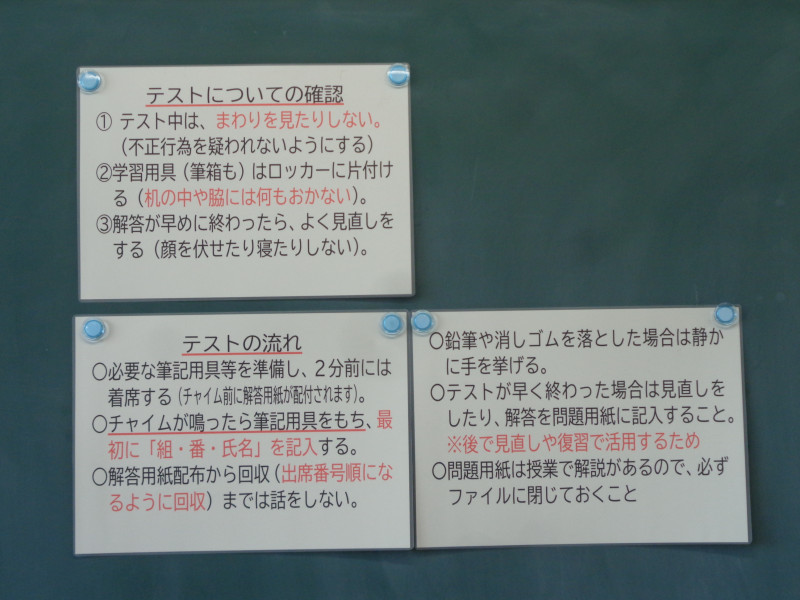 テストについての確認
① テスト中は、まわりを見たりしない。
（不正行為を疑われないようにする）
②学習用具（筆箱も）はロッカーに片付け
る（机の中や脇には何もおかない）。
③解答が早めに終わったら、よく見直しを
する（顔を伏せたり寝たりしない）。
テストの流れ
○必要な筆記用具等を準備し、２分前には
着席する（チャイム前に解答用紙が配付されます）。
○チャイムが鳴ったら筆記用具をもち、最
初に「組・番・氏名」を記入する。
○解答用紙配布から回収（出席番号順にな
るように回収）までは話をしない。
○鉛筆や消しゴムを落とした場合は静か
に手を挙げる。
○テストが早く終わった場合は見直しを
したり、解答を問題用紙に記入すること。
※後で見直しや復習で活用するため
○問題用紙は授業で解説があるので、必ず
ファイルに閉じておくこと